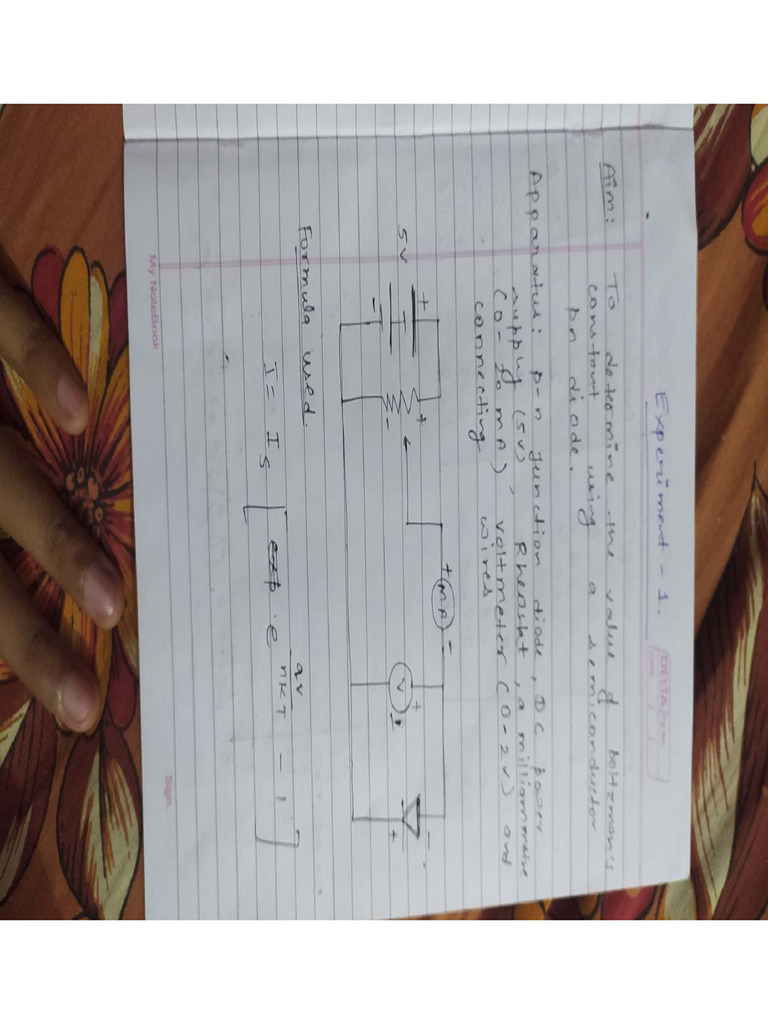 Experiment - 1.
Aim: To determine the value of boltzman's
constant using a semiconductor
pn diode.
Apparatus: p-n junction diode, DC power
supply (5V), Rheostat, a milliammeter
mA), voltmeter (0-2v) and
connecting wires
+ mA -
5V + - + - V + + -
Formula used.
I = Is [ e qv/nKT - 1 ]
My NoteBook
Sign.